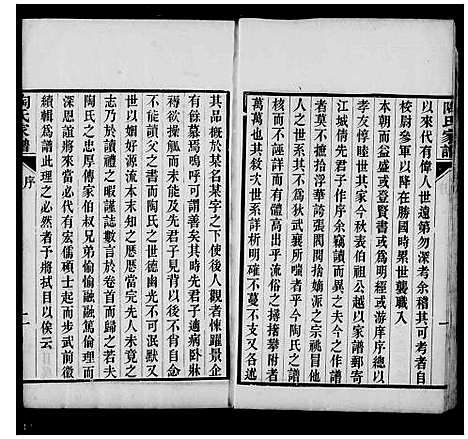 陶氏家譜
以來代有偉人世遠第勿深考余稽其可考自
校尉參軍以陣在勝國時累世襲職入
本朝而益盛或登賢書或為明經或游庠序者
孝友惇睦其家今秋表伯祖公越以家譜郵寄
江城倩先子作序余竊讀而三歎夫今之作譜
者夥矣大率摭拾浮華誇張閥閱捨嫡派之宗祧
核而不諱而三世系不為狄武襄所嗤者乎今陶氏之譜
其於人之世系有體有例高出乎流俗之尋常
萬萬也且其敘次世系詳析明確不蔓不支又
其品概於某名某字之下使後人觀者悚躍景企
有餘慕焉嗚呼可謂善矣其時先君子適病臥牀
褥欲序而未能及先君子見背以後不材自分何
不能讀父之書而陶氏之世德幽光不可泯默又
世以姻好源流本末知之厯厯當完先人未竟之
志乃於讀禮之暇謹誌數言於卷首而歸之若夫
陶氏之忠厚傳家伯叔兄弟愉愉融融篤倫理而
深恩誼將來當必代有宏儒碩士起而步武前徽
續輯為譜此理之必然者予將拭目以俟云
陶氏家譜
序
一
二